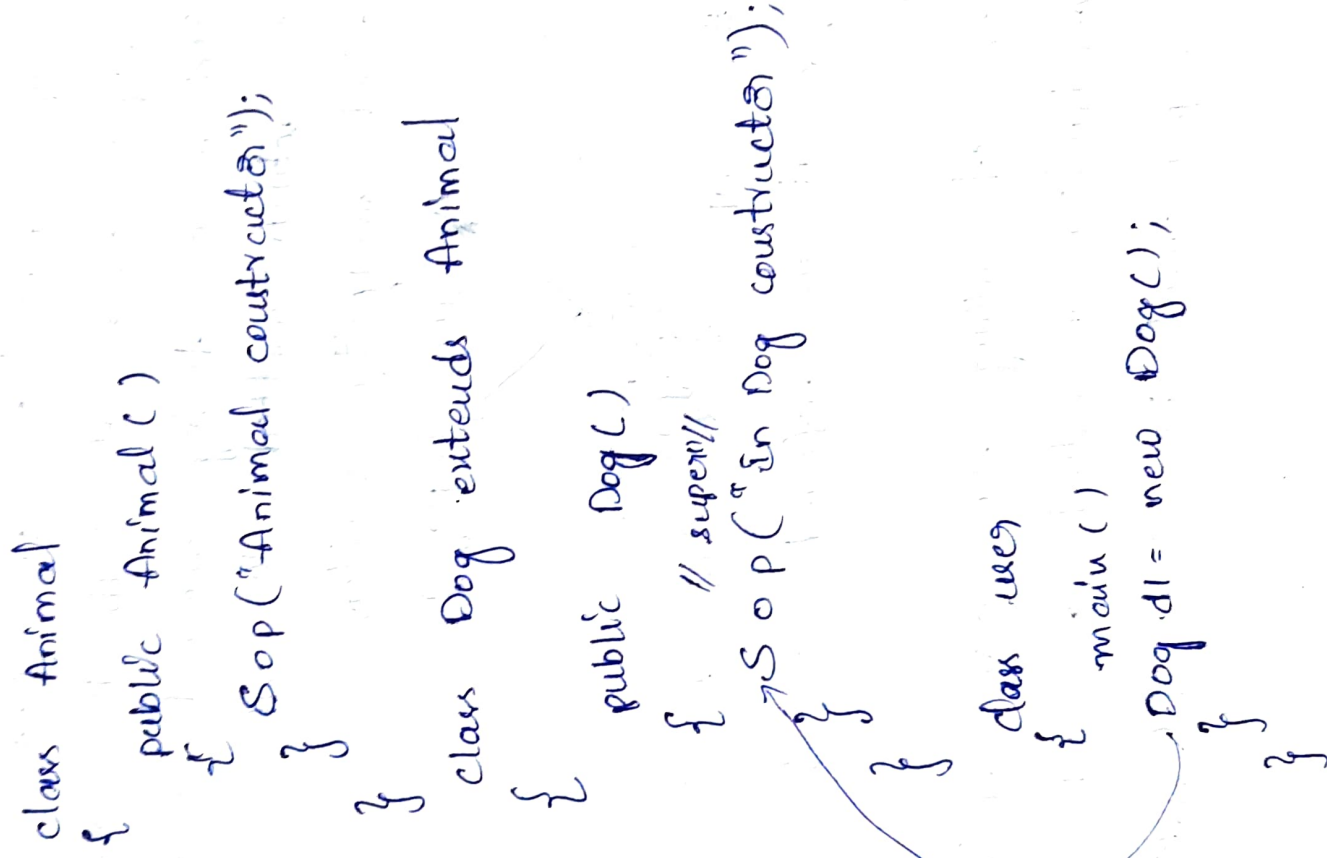 class Animal
{
public Animal()
{
Sop("Animal constructor");
}
}
class Dog extends Animal
{
public Dog()
{ // super //
Sop("in Dog constructor");
}
}
class user
{
main()
Dog d1 = new Dog();
}
}